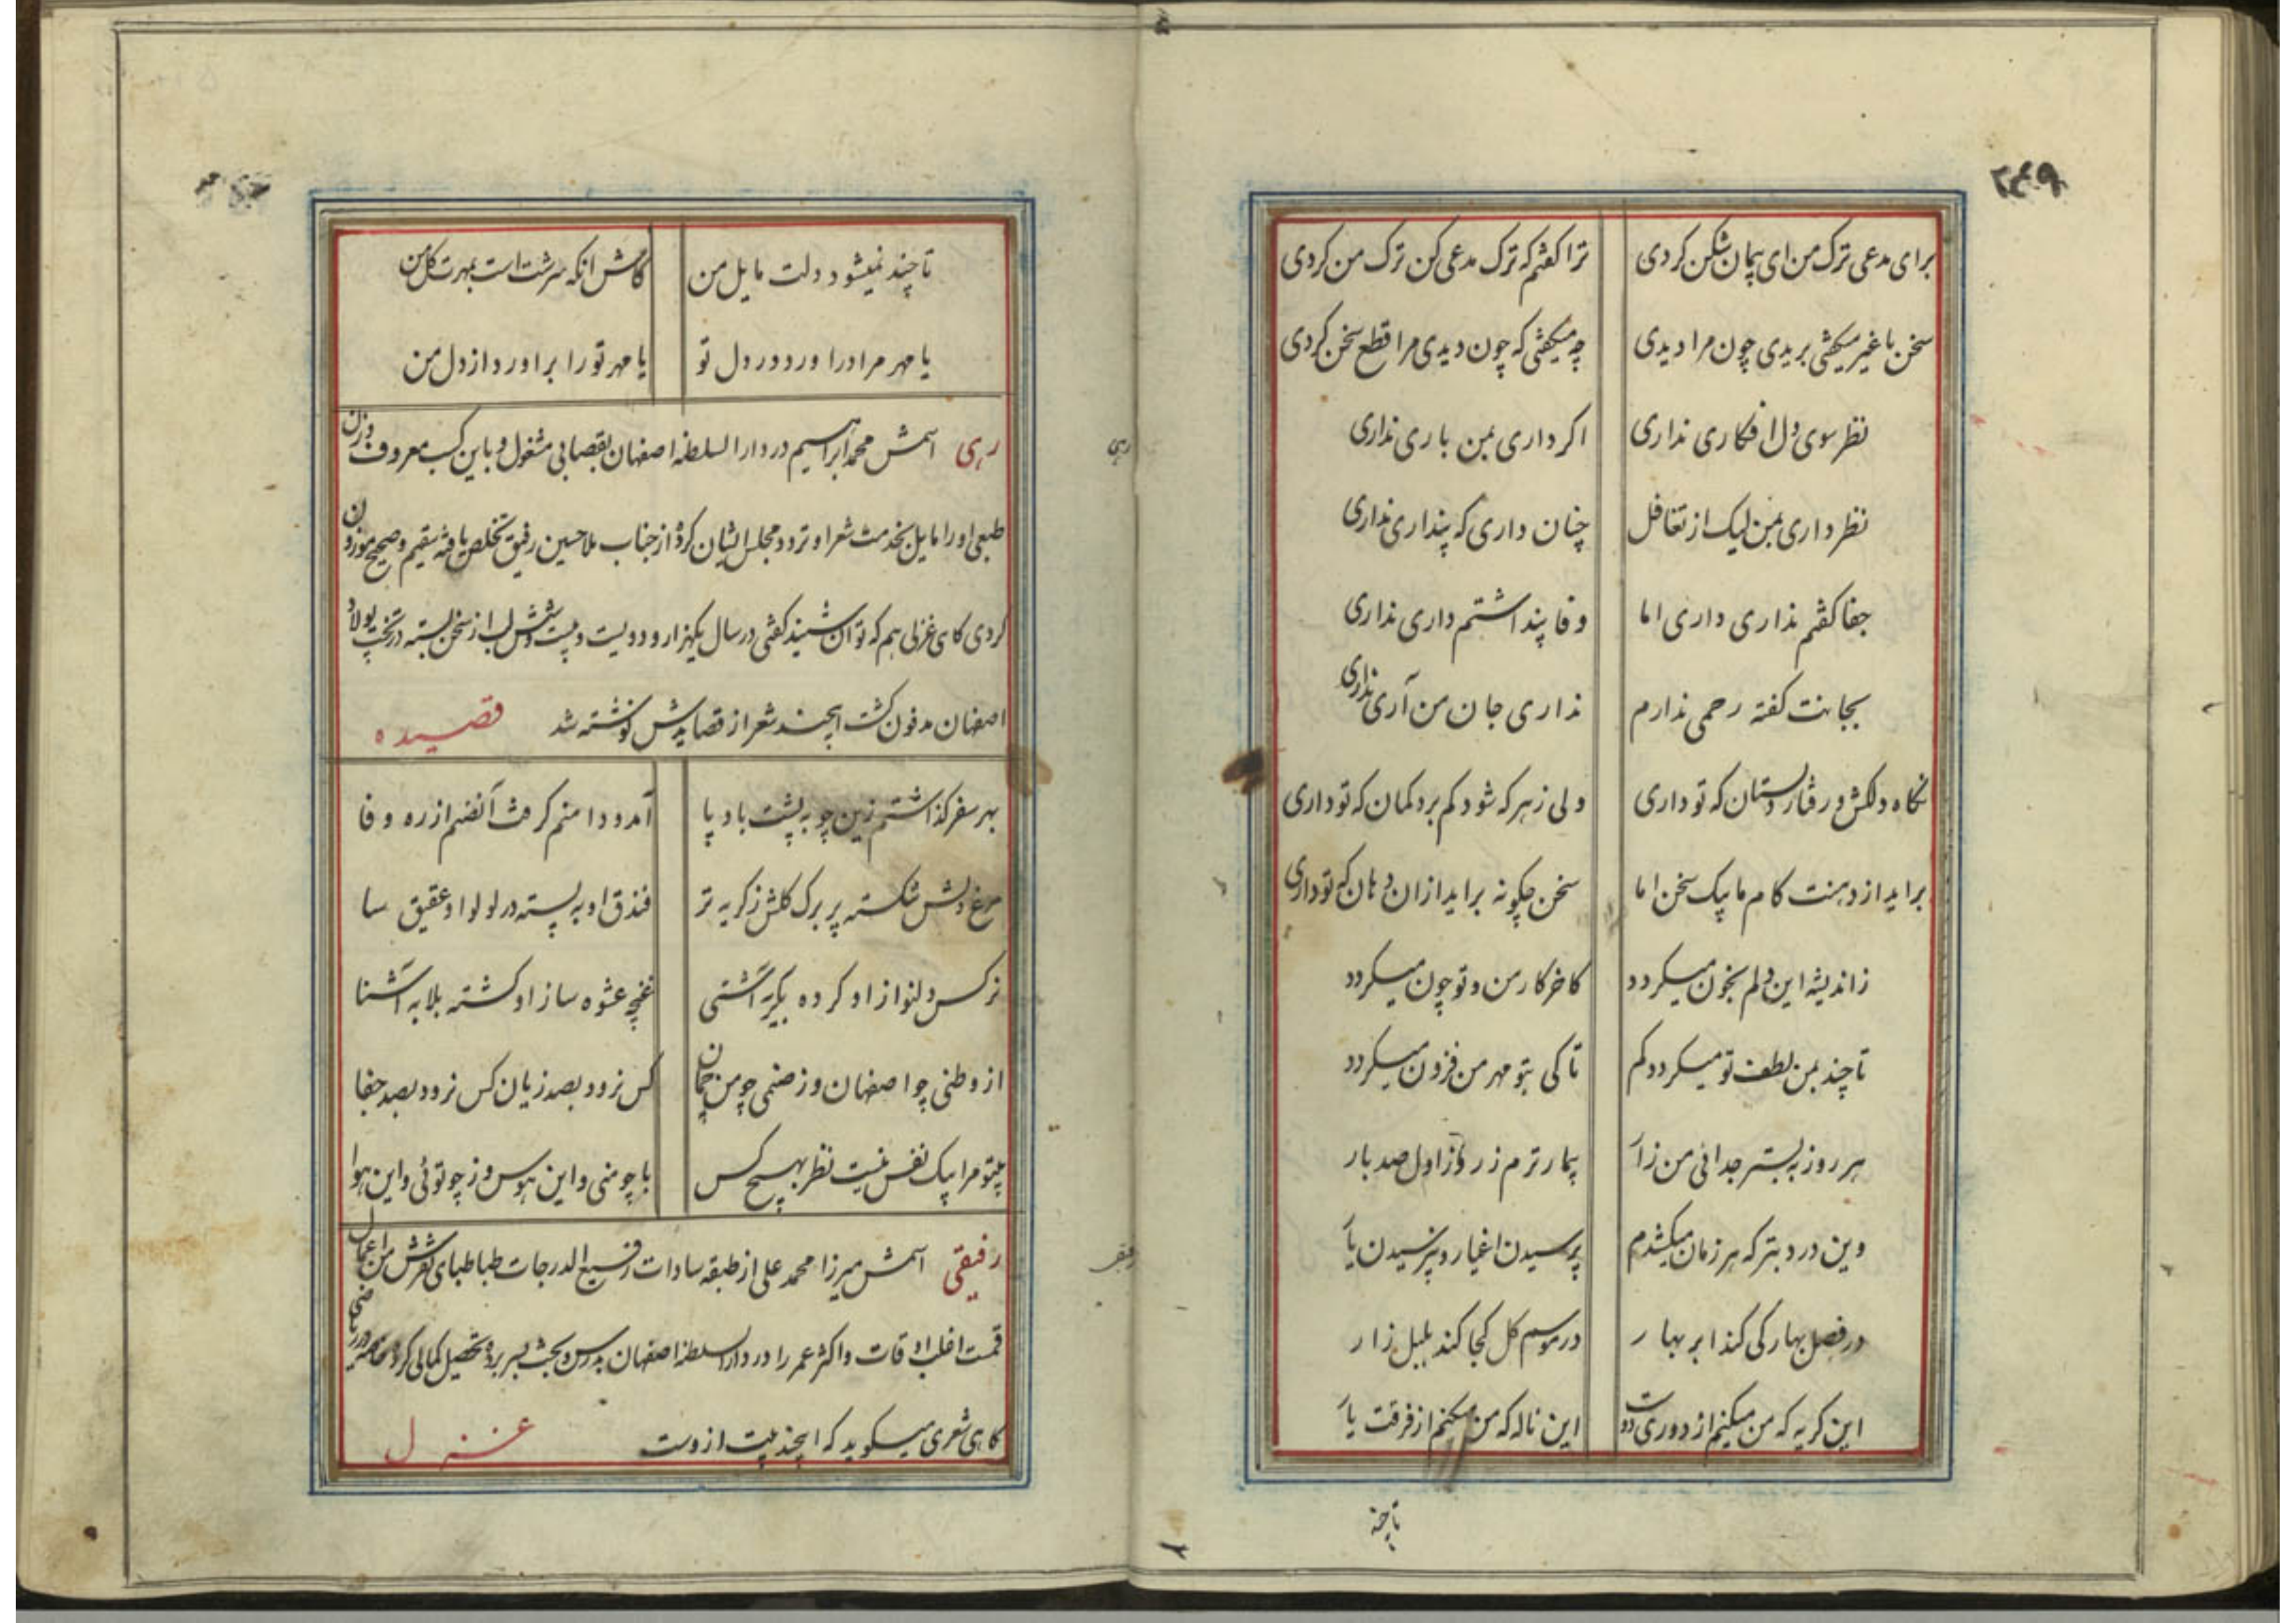 ۲۴۹
برای مدعی ترک من ای پیمان شکن کردی ترا کفتم که ترک مدعی کن ترک من کردی
سخن با غیر میکفتی بریدی چون مرا دیدی چه میکفتی که چون دیدی مرا قطع سخن کردی
نظر سوی دل افکاری نداری اکر داری بمن باری نداری
نظر داری بمن لیک از تغافل چنان داری که پنداری نداری
جفا کفتم نداری داری اما وفا پنداشتم داری نداری
بجانت کفته رحمی ندارم نداری جان من آری نداری
نکاه دلکش و رفتار دلستان که تو داری ولی ز هر که شود کم برد کمان که تو داری
براید از دهنت کام ما بیک سخن اما سخن چکونه براید ازان دهان که تو داری
ز اندیشه این دلم بخون میکردد کاخر کار من و تو چون میکردد
تا چند بمن لطف تو میکردد کم تا کی بتو مهر من فزون میکردد
هر روز به بستر جدائی من زار بیمار ترم ز روز اول صد بار
وین درد بتر که هر زمان میکشدم پرسیدن اغیار و نپرسیدن یار
در فصل بهار کی کند ابر بهار در موسم کل کجا کند بلبل زار
این کریه که من میکنم از دوری دوست این ناله که من میکنم از فرقت یار
تا چند
تا چند نمیشود دلت مایل من کاش انکه سرشت است بمهرت کل من
یا مهر مرا دراورد در دل تو یا مهر تو را براورد از دل من
رهی اسمش محمد ابراهیم در دار السلطنه اصفهان بقصابی مشغول و باین کسب معروف وزن
رهی
طبعی او را مایل بخدمت شعرا و تردد مجلس ایشان کرده از جناب ملا حسین رفیق تخلص یافته سقیم و صحیح موزون
کردی کاهی غزلی هم که توان شنید کفتی در سال یکهزار و دویست و بیست و شش لب از سخن بسته در تخت پولاد
اصفهان مدفون کشت ایچند شعر از قصایدش نوشته شد قصیده
بهر سفر کذاشتم زین چو به پشت بادپا آمد و دامنم کرفت آن صنم از ره وفا
مرغ دلش شکسته پر برک کلش ز کریه تر فندق او به پسته در لولو او عقیق سا
نرکس دلنواز او کرده بکریه آشتی غنچه عشوه ساز او کشته بلابه آشنا
از وطنی چو اصفهان وز صنمی چو من چمان کس نرود بصد زیان کس نرود بصد جفا
بیتو مرا بیک نفس نیست نظر بهیچ کس با چو منی و این هوس وز چو توئی و این هوا
رفیقی اسمش میرزا محمد علی از طبقه سادات رفیع الدرجات طباطبای تفرش من اعمال
قمست اغلب اوقات و اکثر عمر را در دار السلطنه اصفهان بدرس و بحث بسر برده تحصیل کمالی کرده
کاهی شعری میکوید که ایچند بیت ازوست غزل